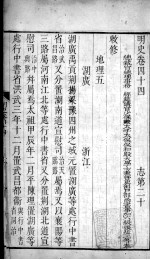 明史卷四十四　志第二十
敕修
地理五
湖廣　浙江
湖廣禹貢荊揚梁豫四州之域元置湖廣等處行中書
省治武昌路又分置湖南道宣慰司治天臨路屬焉又以襄陽等
三路屬河南江北等處行中書省又分置荊湖北道宣
慰司治中興路屬焉太祖甲辰年二月平陳理置湖廣等
處行中書省洪武三年十二月置武昌都衛